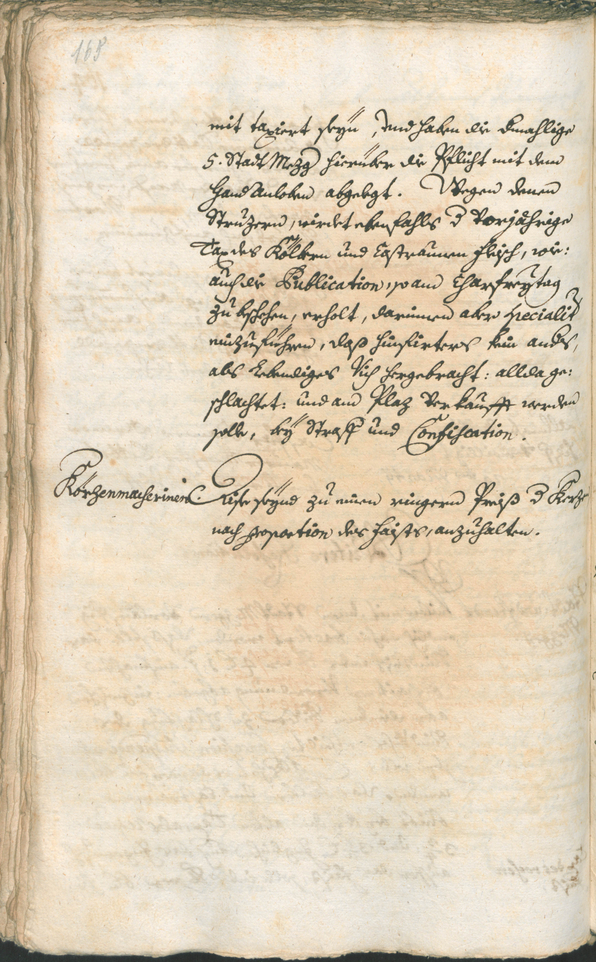 168
mit taxiert seyn, und haben die dermahlige
5. Stadt Mezg hierüber die Pflicht mit dem
Hand Anloben abgelegt. Wegen denen
wirdet ebenfahls d vorjährige
Tax des Kölbern und Castraunen Fleisch, wie:
auch die Publication, so am Charfreytag
zu bschehen, erholt, darinnen aber specialit
einzuführen, daß hinfürters kein anders,
als lebendiges Vich hergebracht: allda ge:
schlachtet: und am Plaz verkaufft werden
solle, bey Straff und Confiscation.
Körzenmacherinen. Dise seynd zu einen ringern Preiß d Kerzen
nach proportion des Faists, anzuhalten.